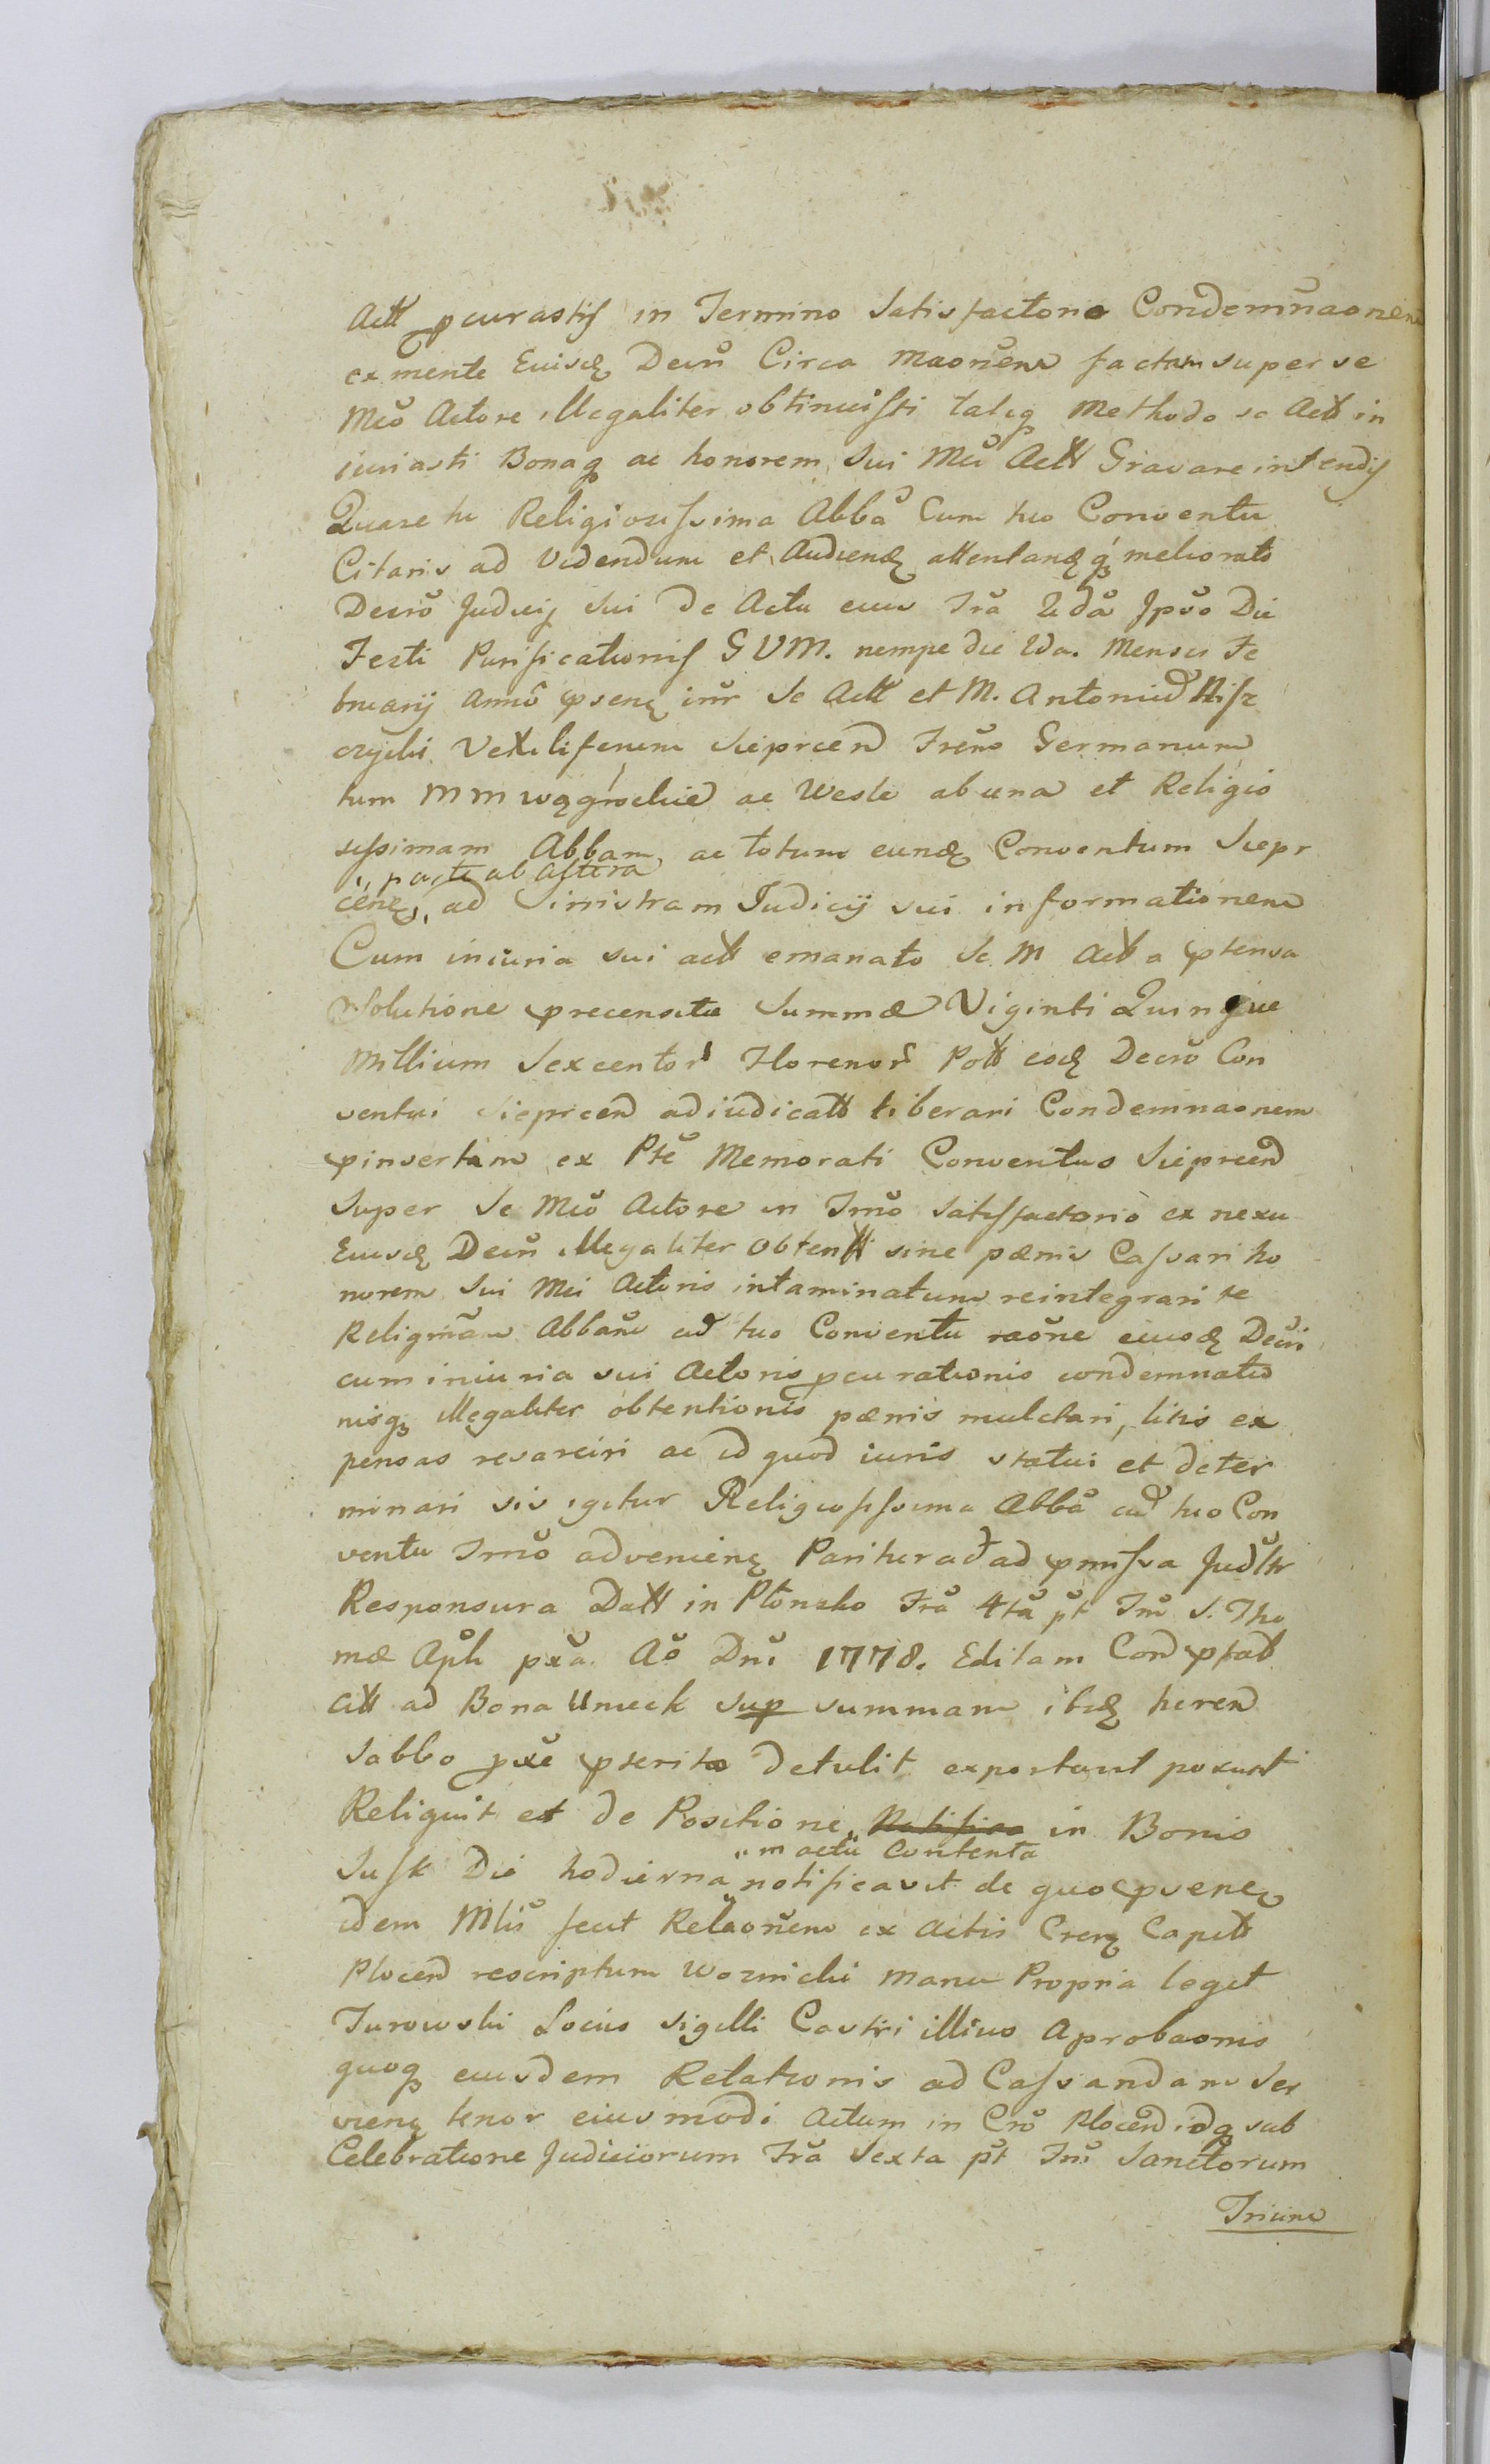 Actt pcurastis in Termino Satisfactorio Condemnaonem
ex mente Eiusd Decri Circa maonem factam super se
Mco Actore illegaliter obtinuisti taliq Methodo se Actt in
iuriasti Bonaq ac honorem Sui Mci Actt Gravare intendis
Quare tu Religiosissima Abba Cum tuo Conventu
Citaris ad Videndum et Audiend attentand q meliorato
Decro Judicij Sui de Actu eius Fra 2da Ipso Die
Festi Purificationis G V M. nempe die 2da. Mensis Fe
bruarij Anno psenti intr Se Actt et M. Antonium Nisz
czycki Vexiliferum Sieprcen Frem Germanum
tum M M Wągrockie ac Wesle ab una et Religio
sissimam Abbam ac totum eund Conventum Siepr
" parte ab Altera
cen, " ad Sinistram Judicij sui informationem
Cum iniuria sui actt emanato Se M Actt a ptensa
Solutione precensitæ Summæ Viginti Quinque
Millium Sexcentor Florenor Pott eod Decro Con
ventui Sieprcen adiudicatt liberari Condemnaonem
pinsertam ex Pte Memorati Conventus Sieprcen
Super Se Mco Actore in Tmo Satisfactorio ex nexu
Eiusd Decri illegaliter obtentt sine pænis Cassari ho
norem Sui Mci Actoris intaminatum reintegrari te
Religmam Abbam cum tuo Conventu raone eiusd Decri
cum iniuria sui Actoris pcurationis condemnatio
nisq illegaliter obtentionis pænis mulctari, litis ex
pensas resarciri ac id quod iuris statui et deter
minari sis igitur Religiosissima Abba cum tuo Con
ventu Tmo adveniens Paritura ad pmissa Judltr
Responsura Datt in Płonsko Fra 4ta pt Tm S. Tho
mæ Aph pxa. Ao Dni 1778. Editam Cond ptad
citt ad Bona Unieck sup summam ibid heren
Sabbo pxe pterito detulit exportavit posuit
Reliquit et de Positione Notifica in Bonis
" m actu Contenta
Susk Die hodierna notificavit de quo psens
idem Mlis fecit Relaonem ex Actis Crens Capitt
Plocen rescriptum Woznicki manu Propria legit
Turowski Locus Sigilli Castri illius Aprobaonis
quoq eiusdem Relationis ad Cassandam Ser
viens tenor eiusmodi Actum in Cro Plocen idq sub
Celebratione Judiciorum Fra Sexta pt Fm Sanctorum
Trium